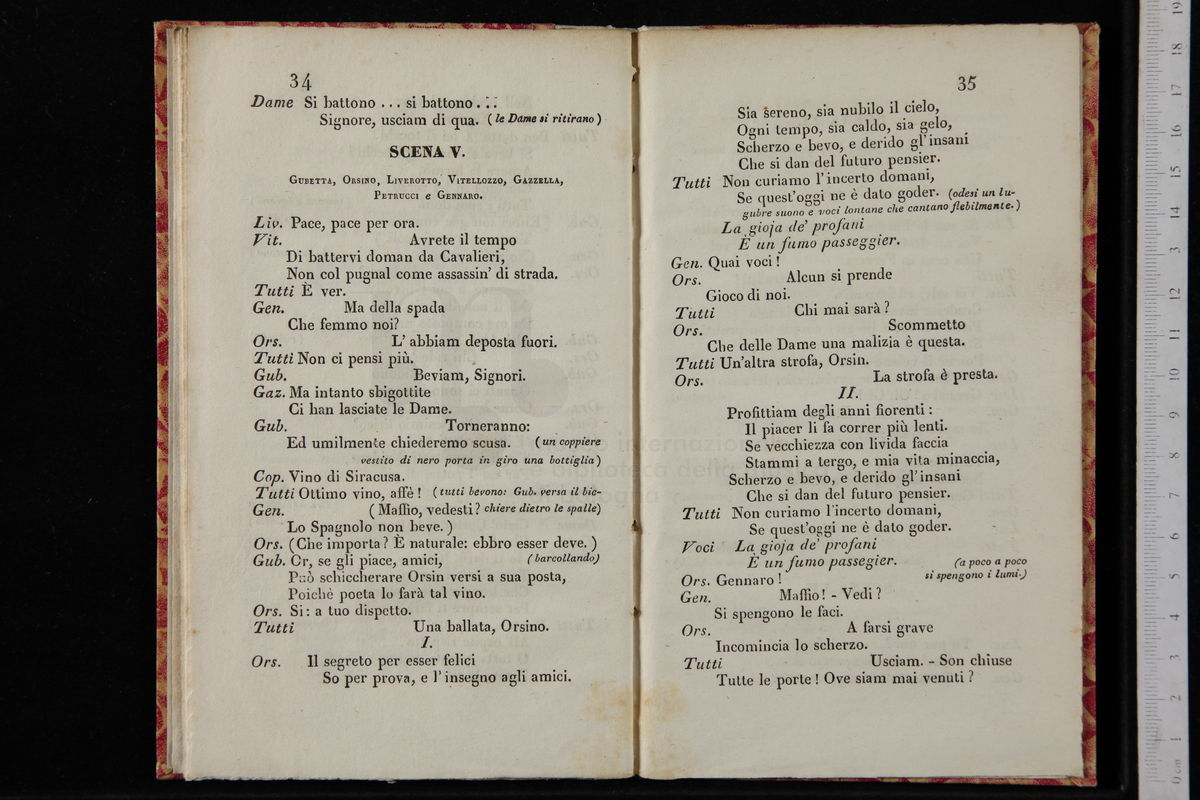 34
Dame Si battono ... si battono ...
Signore, usciam di qua. (le Dame si ritirano)
SCENA V.
GUBETTA, ORSINO, LIVEROTTO, VITELLOZZO, GAZZELLA,
PETRUCCI e GENNARO.
Liv. Pace, pace per ora.
Vit. Avrete il tempo
Di battervi doman da Cavalieri,
Non col pugnal come assassin' di strada.
Tutti È ver.
Gen. Ma della spada
Che femmo noi?
Ors. L' abbiam deposta fuori.
Tutti Non ci pensi più.
Gub. Beviam, Signori.
Gaz. Ma intanto sbigottite
Ci han lasciate le Dame.
Gub. Torneranno:
Ed umilmente chiederemo scusa. (un coppiere
vestito di nero porta in giro una bottiglia)
Cop. Vino di Siracusa.
Tutti Ottimo vino, affè! (tutti bevono: Gub. versa il bic-
Gen. (Maffio, vedesti? chiere dietro le spalle)
Lo Spagnolo non beve.)
Ors. (Che importa? È naturale: ebbro esser deve.)
Gub. Or, se gli piace, amici, (barcollando)
Può schiccherare Orsin versi a sua posta,
Poichè poeta lo farà tal vino.
Ors. Si: a tuo dispetto.
Tutti Una ballata, Orsino.
I.
Ors. Il segreto per esser felici
So per prova, e l' insegno agli amici.
35
Sia sereno, sia nubilo il cielo,
Ogni tempo, sia caldo, sia gelo,
Scherzo e bevo, e derido gl' insani
Che si dan del futuro pensier.
Tutti Non curiamo l' incerto domani,
Se quest'oggi ne è dato goder. (odesi un lu-
gubre suono e voci lontane che cantano flebilmente.)
La gioja de' profani
E' un fumo passeggier.
Gen. Quai voci!
Ors. Alcun si prende
Gioco di noi.
Tutti Chi mai sarà?
Ors. Scommetto
Che delle Dame una malizia è questa.
Tutti Un'altra strofa, Orsin.
Ors. La strofa è presta.
II.
Profittiam degli anni fiorenti:
Il piacer li fa correr più lenti.
Se vecchiezza con livida faccia
Stammi a tergo, e mia vita minaccia,
Scherzo e bevo, e derido gl' insani
Che si dan del futuro pensier.
Tutti Non curiamo l'incerto domani,
Se quest'oggi ne è dato goder.
Voci La gioja de' profani
È un fumo passegier. (a poco a poco
Ors. Gennaro! si spengono i lumi.)
Gen. Maffio! - Vedi?
Si spengono le faci.
Ors. A farsi grave
Incomincia lo scherzo.
Tutti Usciam. - Son chiuse
Tutte le porte! Ove siam mai venuti?